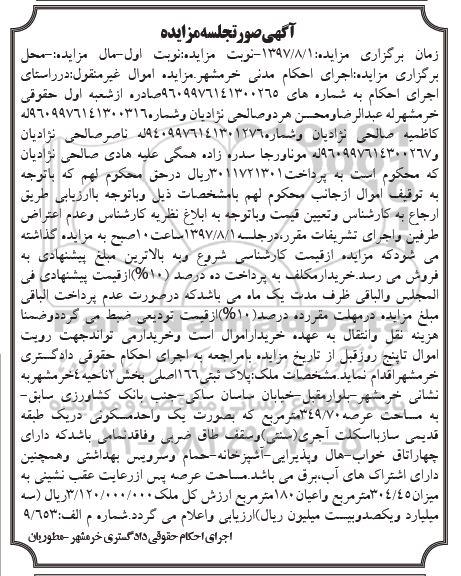 آگهی صورتجلسه مزایده
زمان برگزاری مزایده:۱۳۹۷/۸/۱-نوبت مزایده:نوبت اول-مال مزایده:-محل
برگزاری مزایده:اجرای احکام مدنی خرمشهر.مزایده اموال غیرمنقول:درراستای
اجرای احکام به شماره های ۹۶۰۹۹۷۶۱۴۱۳۰۰۲۶۵صادره ازشعبه اول حقوقی
خرمشهرله عبدالرضاومحسن هردوصالحی نژادیان وشماره۹۶۰۹۹۷۶۱۴۱۳۰۰۳۱۶له
کاظمیه صالحی نژادیان وشماره۹۴۰۹۹۷۶۱۴۱۳۰۱۲۷۶له ناصرصالحی نژادیان
و۹۶۰۹۹۷۶۱۴۳۰۰۲۶۷له موناورجا سدره زاده همگی علیه هادی صالحی نژادیان
که محکوم است به پرداخت۳۰۱۱۷۲۱۳۰۱ریال درحق محکوم لهم که باتوجه
به توقیف اموال ازجانب محکوم لهم بامشخصات ذیل وباتوجه باارزیابی طریق
ارجاع به کارشناس وتعیین قیمت وباتوجه به ابلاغ نظریه کارشناس وعدم اعتراض
طرفین واجرای تشریفات مقرر،درجلسه۱۳۹۷/۸/۱ساعت۱۰صبح به مزایده گذاشته
می شودکه مزایده ازقیمت کارشناسی شروع وبه بالاترین مبلغ پیشنهادی به
فروش می رسد.خریدارمکلف به پرداخت ده درصد (۱۰%)ازقیمت پیشنهادی فی
المجلس والباقی ظرف مدت یک ماه می باشدکه درصورت عدم پرداخت الباقی
مبلغ مزایده درمهلت مقررده درصد(۱۰%)ازقیمت تودیعی ضبط می گرددوضمنا
هزینه نقل وانتقال به عهده خریداراموال است وخریدارمی تواندجهت رویت
اموال تاپنج روزقبل از تاریخ مزایده بامراجعه به اجرای احکام حقوقی دادگستری
خرمشهراقدام نماید.مشخصات ملک:پلاک ثبتی۱۶۶اصلی بخش۲ناحیه۴خرمشهربه
نشانی خرمشهر-بلوارمقبل-خیابان ساسان ساکی-جنب بانک کشاورزی سابق-
به مساحت عرصه۳۴۹/۷۰مترمربع که بصورت یک واحدمسکونی دریک طبقه
قدیمی سازبااسکلت آجری(سنتی)وسقف طاق ضربی وفاقدنمامی باشدکه دارای
چهاراتاق خواب-هال وپذیرایی-آشپزخانه-حمام وسرویس بهداشتی وهمچنین
دارای اشتراک های آب،برق می باشد.مساحت عرصه پس ازرعایت عقب نشینی به
میزان۳۰۴/۴۵مترمربع واعیان۱۸۰مترمربع ارزش کل ملک۳/۱۲۰/۰۰۰/۰۰۰ریال (سه
میلیارد ویکصدوبیست میلیون ریال)ارزیابی واعلام می گردد.شماره م الف:۹/۶۵۳
اجرای احکام حقوقی دادگستری خرمشهر -مطوریان